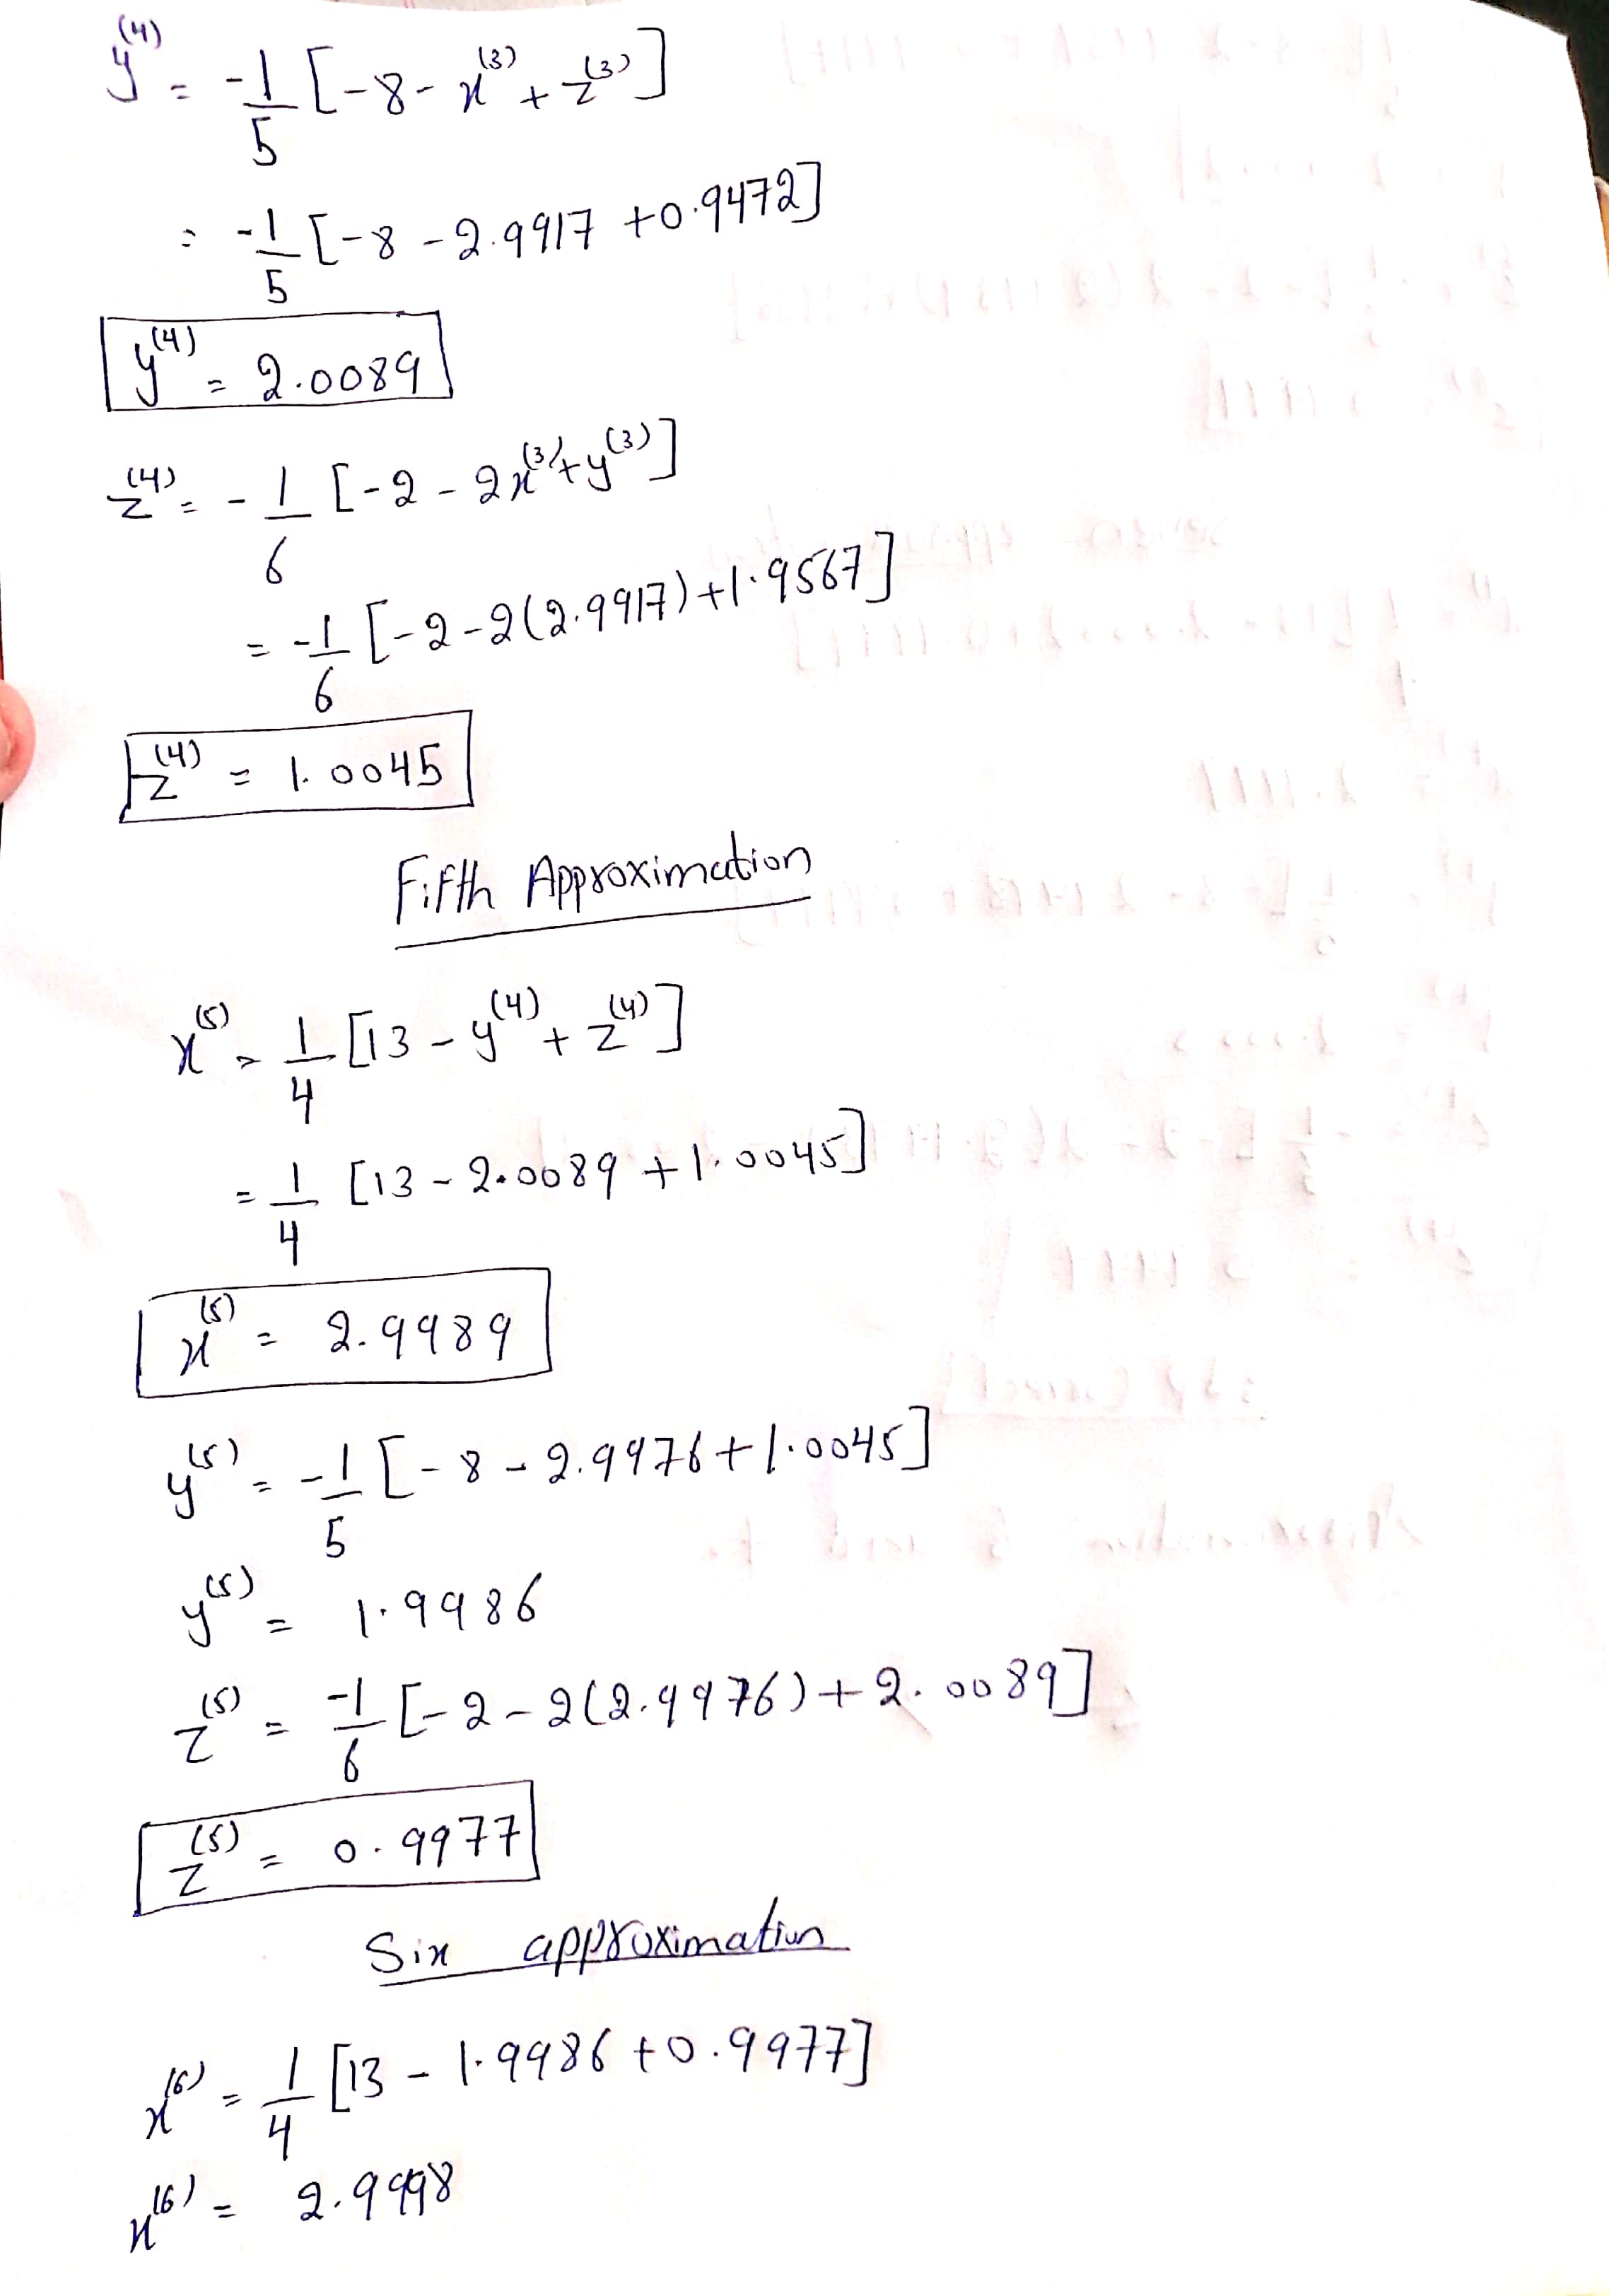 y⁽⁴⁾ = -1/5 [-8 - x⁽³⁾ + z⁽³⁾]
= -1/5 [-8 - 2.9917 + 0.9472]
y⁽⁴⁾ = 2.0089
z⁽⁴⁾ = -1/6 [-2 - 2x⁽³⁾ + y⁽³⁾]
= -1/6 [-2 - 2(2.9917) + 1.9567]
z⁽⁴⁾ = 1.0045
Fifth Approximation
x⁽⁵⁾ = 1/4 [13 - y⁽⁴⁾ + z⁽⁴⁾]
= 1/4 [13 - 2.0089 + 1.0045]
x⁽⁵⁾ = 2.9989
y⁽⁵⁾ = -1/5 [-8 - 2.9976 + 1.0045]
y⁽⁵⁾ = 1.9986
z⁽⁵⁾ = -1/6 [-2 - 2(2.9976) + 2.0089]
z⁽⁵⁾ = 0.9977
Six approximation
x⁽⁶⁾ = 1/4 [13 - 1.9986 + 0.9977]
x⁽⁶⁾ = 2.9998